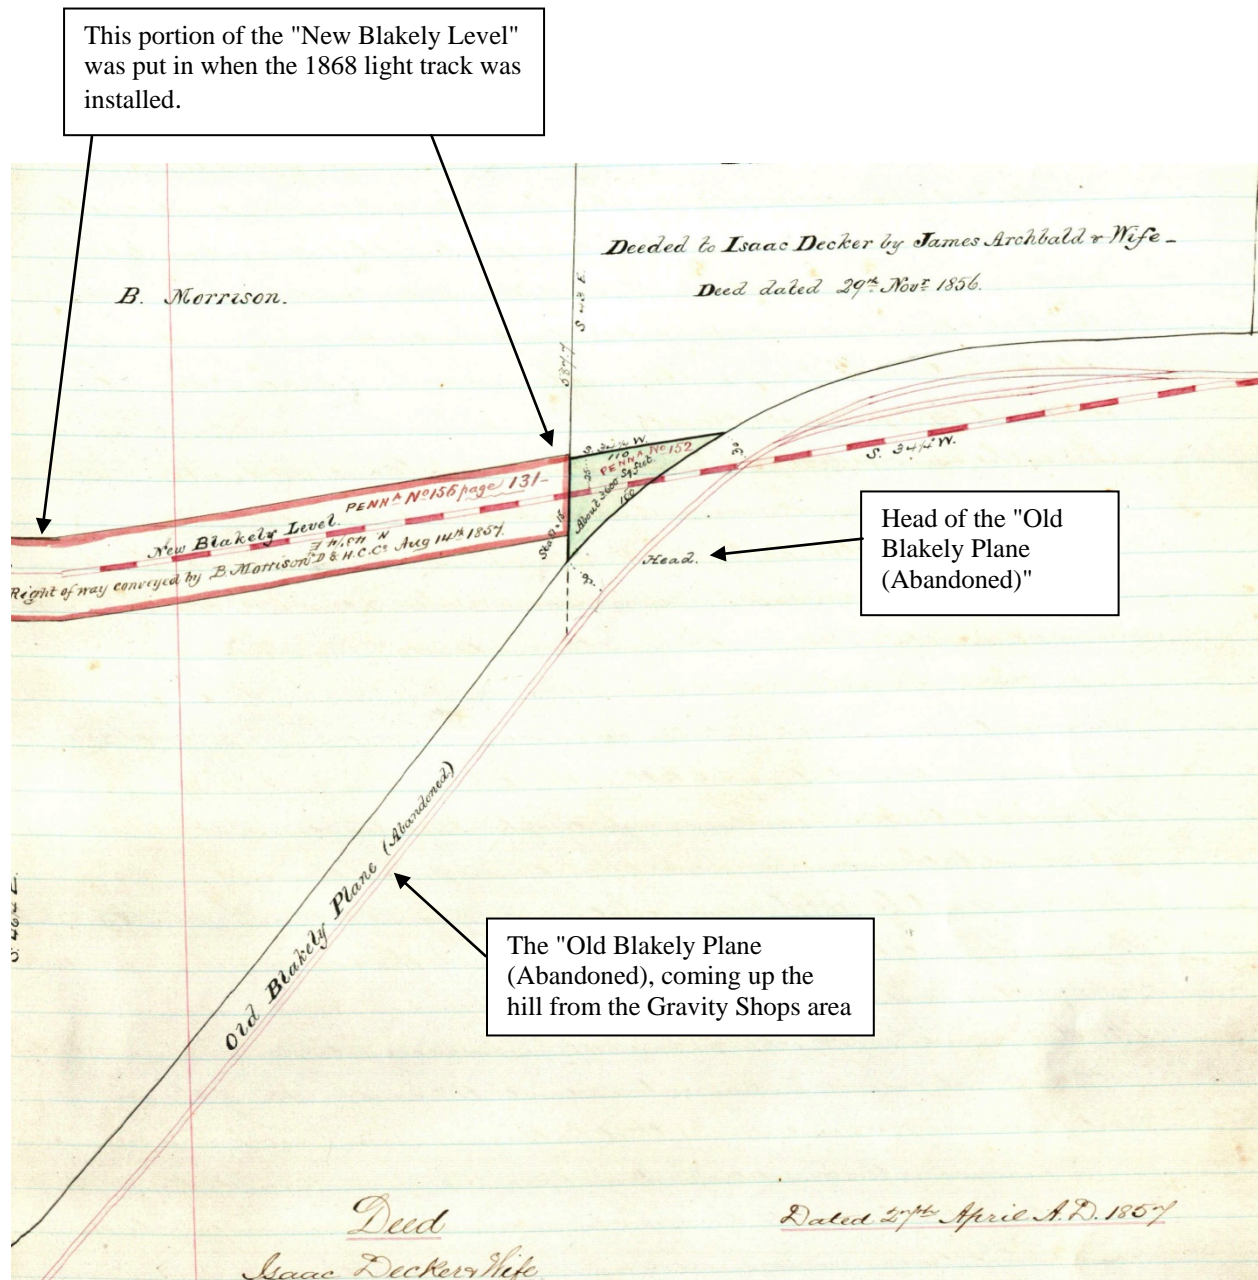 This portion of the "New Blakely Level"
was put in when the 1868 light track was
installed.
Deeded to Isaac Decker by James Archbald & Wife_
Deed dated 29th Novr 1856.
B. Morrison.
S 43 E.
S. 34¼ W.
110
PENNA No 152
About 3600 Sq Feet.
150
30
S. 34¼ W.
PENNA No 155 page 131-
New Blakely Level.
Right of way conveyed by B. Morrison to D & H. C. Co Aug 14th 1857.
Head.
30
Head of the "Old
Blakely Plane
(Abandoned)"
Old Blakely Plane (Abandoned)
The "Old Blakely Plane
(Abandoned), coming up the
hill from the Gravity Shops area
Deed
Dated 27th April A.D. 1857
Isaac Decker & Wife